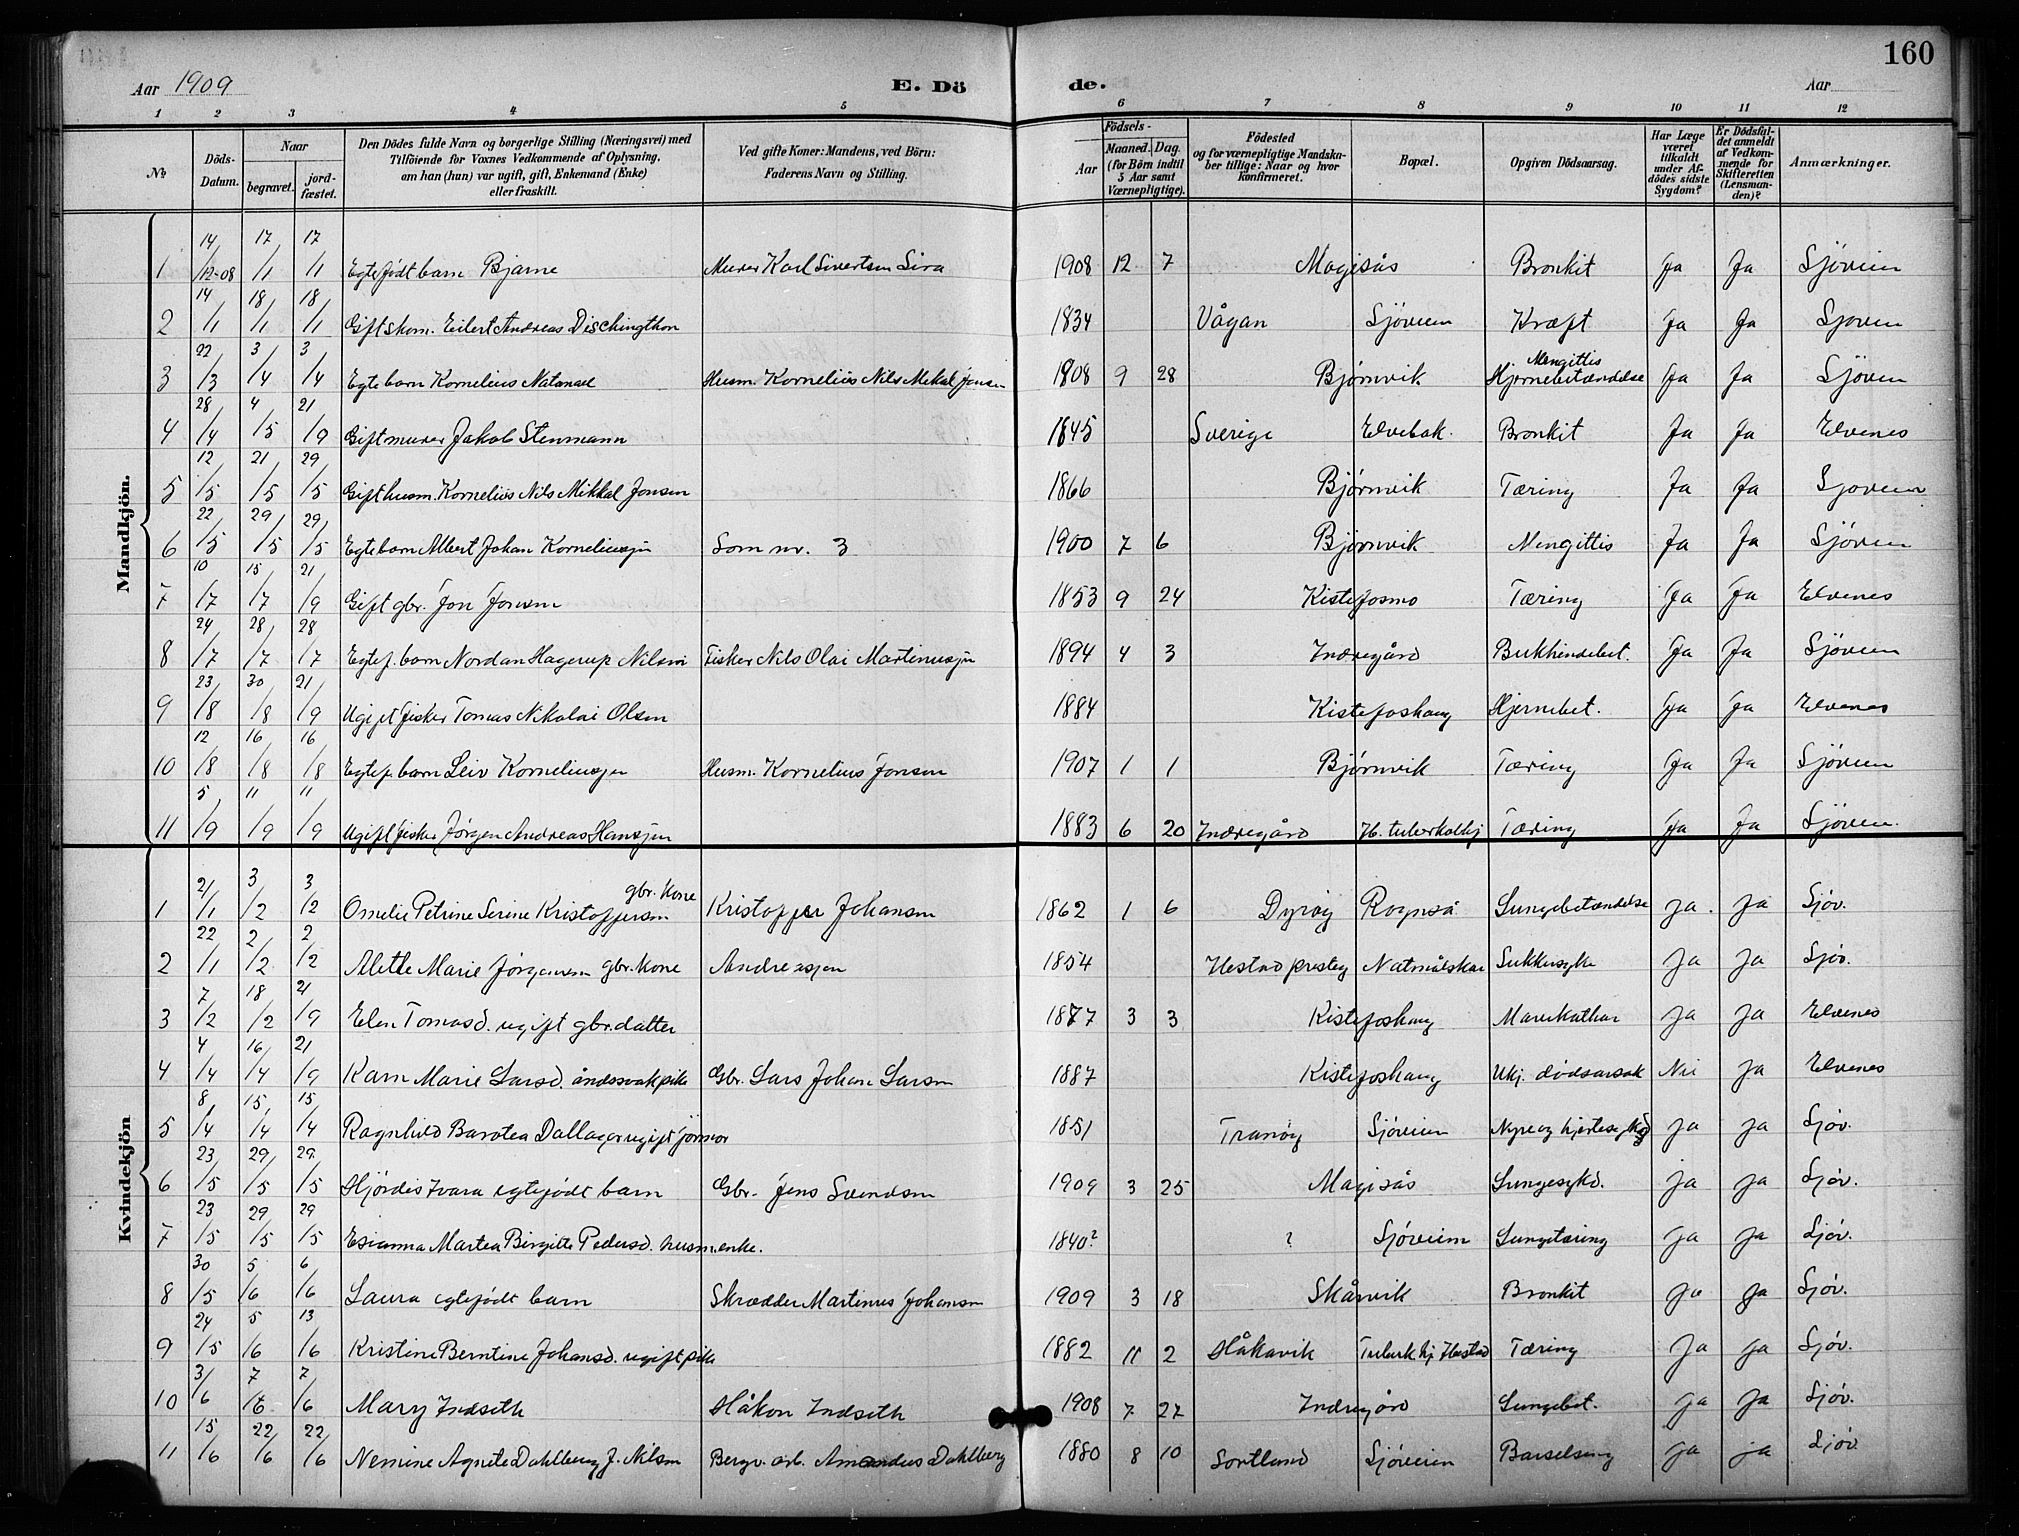 160
Aar 1909 E. Dö de. Aar
1 2 3 4 5 6 7 8 9 10 11 12
No
Döds-Datum.
Naar
begravet.
jord-fæstet.
Den Dödes fulde Navn og borgerlige Stilling (Næringsvei) med
Tilföiende for Voxnes Vedkommende af Oplysning,
om han (hun) var ugift, gift, Enkemand (Enke)
eller fraskilt.
Ved gifte Koner: Mandens, ved Börn:
Faderens Navn og Stilling.
Födsels-
Aar
Maaned. Dag.
(for Börn indtil
5 Aar samt
Værnepligtige).
Födested
og for værnepligtige Mandska-
ber tillige: Naar og hvor
konfirmeret.
Bopæl.
Opgiven Dödsaarsag.
Har Læge
været
tilkaldt
under Af-
dödes sidste
Sygdom?
Er Dödsfal-
det anmeldt
af Vedkom-
mende for
Skifteretten
(Lensman-
den)?
Anmærkninger.
Mandkjön.
1 14/12-08 17/1 17/1 Egtefødt barn Bjarne Murer Karl Sivertsen Sira 1908 12 7 Magisås Bronkit Ja Ja Sjøveien
2 14/1 18/1 18/1 Gift skom. Eilert Andreas Dischingthon 1834 Vågan Sjøveien Kræft Ja Ja Sjøveien
3 22/3 3/4 3/4 Egte barn Kornelius Natanael Husm. Kornelius Nils Mikal Jonsen 1908 9 28 Bjørnvik Mengittis Hjernebetændelse Ja Ja Sjøveien
4 28/4 4/5 21/9 Gift murer Jakob Stenmann 1845 Sverige Elvebak. Bronkit Ja Ja Elvenes
5 12/5 21/5 29/5 Gift husm. Kornelius Nils Mikkal Jonsen 1866 Bjørnvik Tæring Ja Ja Sjøveien
6 22/5 29/5 29/5 Egte barn Albert Johan Korneliussen Som nr. 3 1900 7 6 Bjørnvik Mengittis Ja Ja Sjøveien
7 10/7 15/7 21/9 Gift gbr. Jon Jonsen 1853 9 24 Kistefosmo Tæring Ja Ja Elvenes
8 24/7 28/7 28/7 Egtef. barn Nordan Hagerup Nilsen Fisker Nils Olai Martinussen 1894 4 3 Indregård Bukhindebet. Ja Ja Sjøveien
9 23/8 30/8 21/9 Ugift fisker Tomas Nikolai Olsen 1884 Kistefoshaug Hjernebet. Ja Ja Elvenes
10 12/8 16/8 16/8 Egtef. barn Leiv Korneliussen Husm. Kornelius Jonsen 1907 1 1 Bjørnvik Tæring Ja Ja Sjøveien
11 5/9 11/9 11/9 Ugift fisker Jørgen Andreas Hanssen 1883 6 20 Indregård H. tuberkolhj Tæring Ja Ja Sjøveien.
Kvindekjön
1 21/1 3/2 3/2 Omelie Petrine Serine Kristoffersen gbr. kone Kristoffer Johansen 1862 1 6 Dyrøy Rognså Lungebetændelse Ja. Ja Sjøv.
2 22/1 2/2 2/2 Alette Marie Jørgensen gbr. kone Andreassen 1854 Ibestad presteg Natmålskar Sukkersyke Ja Ja Sjøv.
3 7/2 18/2 21/9 Elen Tomasd. ugift gbr. datter 1877 3 3 Kistefoshaug Mavekathar Ja Ja Elvenes
4 4/4 16/4 21/9 Karn Marie Larsd. åndssvak pike Gbr. Lars Johan Larsen 1887 Kistefoshaug Ukj. dødsarsak Nei Ja Elvenes
5 8/4 15/4 15/4 Ragnhild Barotea Dallager ugift jormor 1851 Tranøy Sjøveien Nyre og hjertesykd Ja Ja Sjøv.
6 23/5 29/5 29/5 Hjørdis Ivara egtefødt barn Gbr. Jens Svendsen 1909 3 25 Magisås Lungesykd. Ja Ja Sjøv.
7 23/5 29/5 29/5 Esianna Martea Birgitte Pedersd. husm.enke. 1840? ? Sjøveien Lungetæring Ja Ja Sjøv.
8 30/5 5/6 6/6 Laura egtefødt barn Skrædder Martinus Johansen 1909 3 18 Skårvik Bronkit Ja Ja Sjøv.
9 24/5 5/6 13/6 Kristine Berntine Johansd. ugift pike 1882 11 2 Håkavik Tuberk hj Ibestad Tæring Ja Ja Sjøv.
10 3/6 7/6 7/6 Mary Indseth Håkon Indseth 1908 7 27 Indregård Lungebet. Ja Ja Sjøv.
11 15/6 22/6 22/6 Nemine Agnete Dahlberg f. Nilsen Bergv. arb. Amandus Dahlberg 1880 8 10 Sortland Sjøveien Barselseng Ja Ja Sjøv